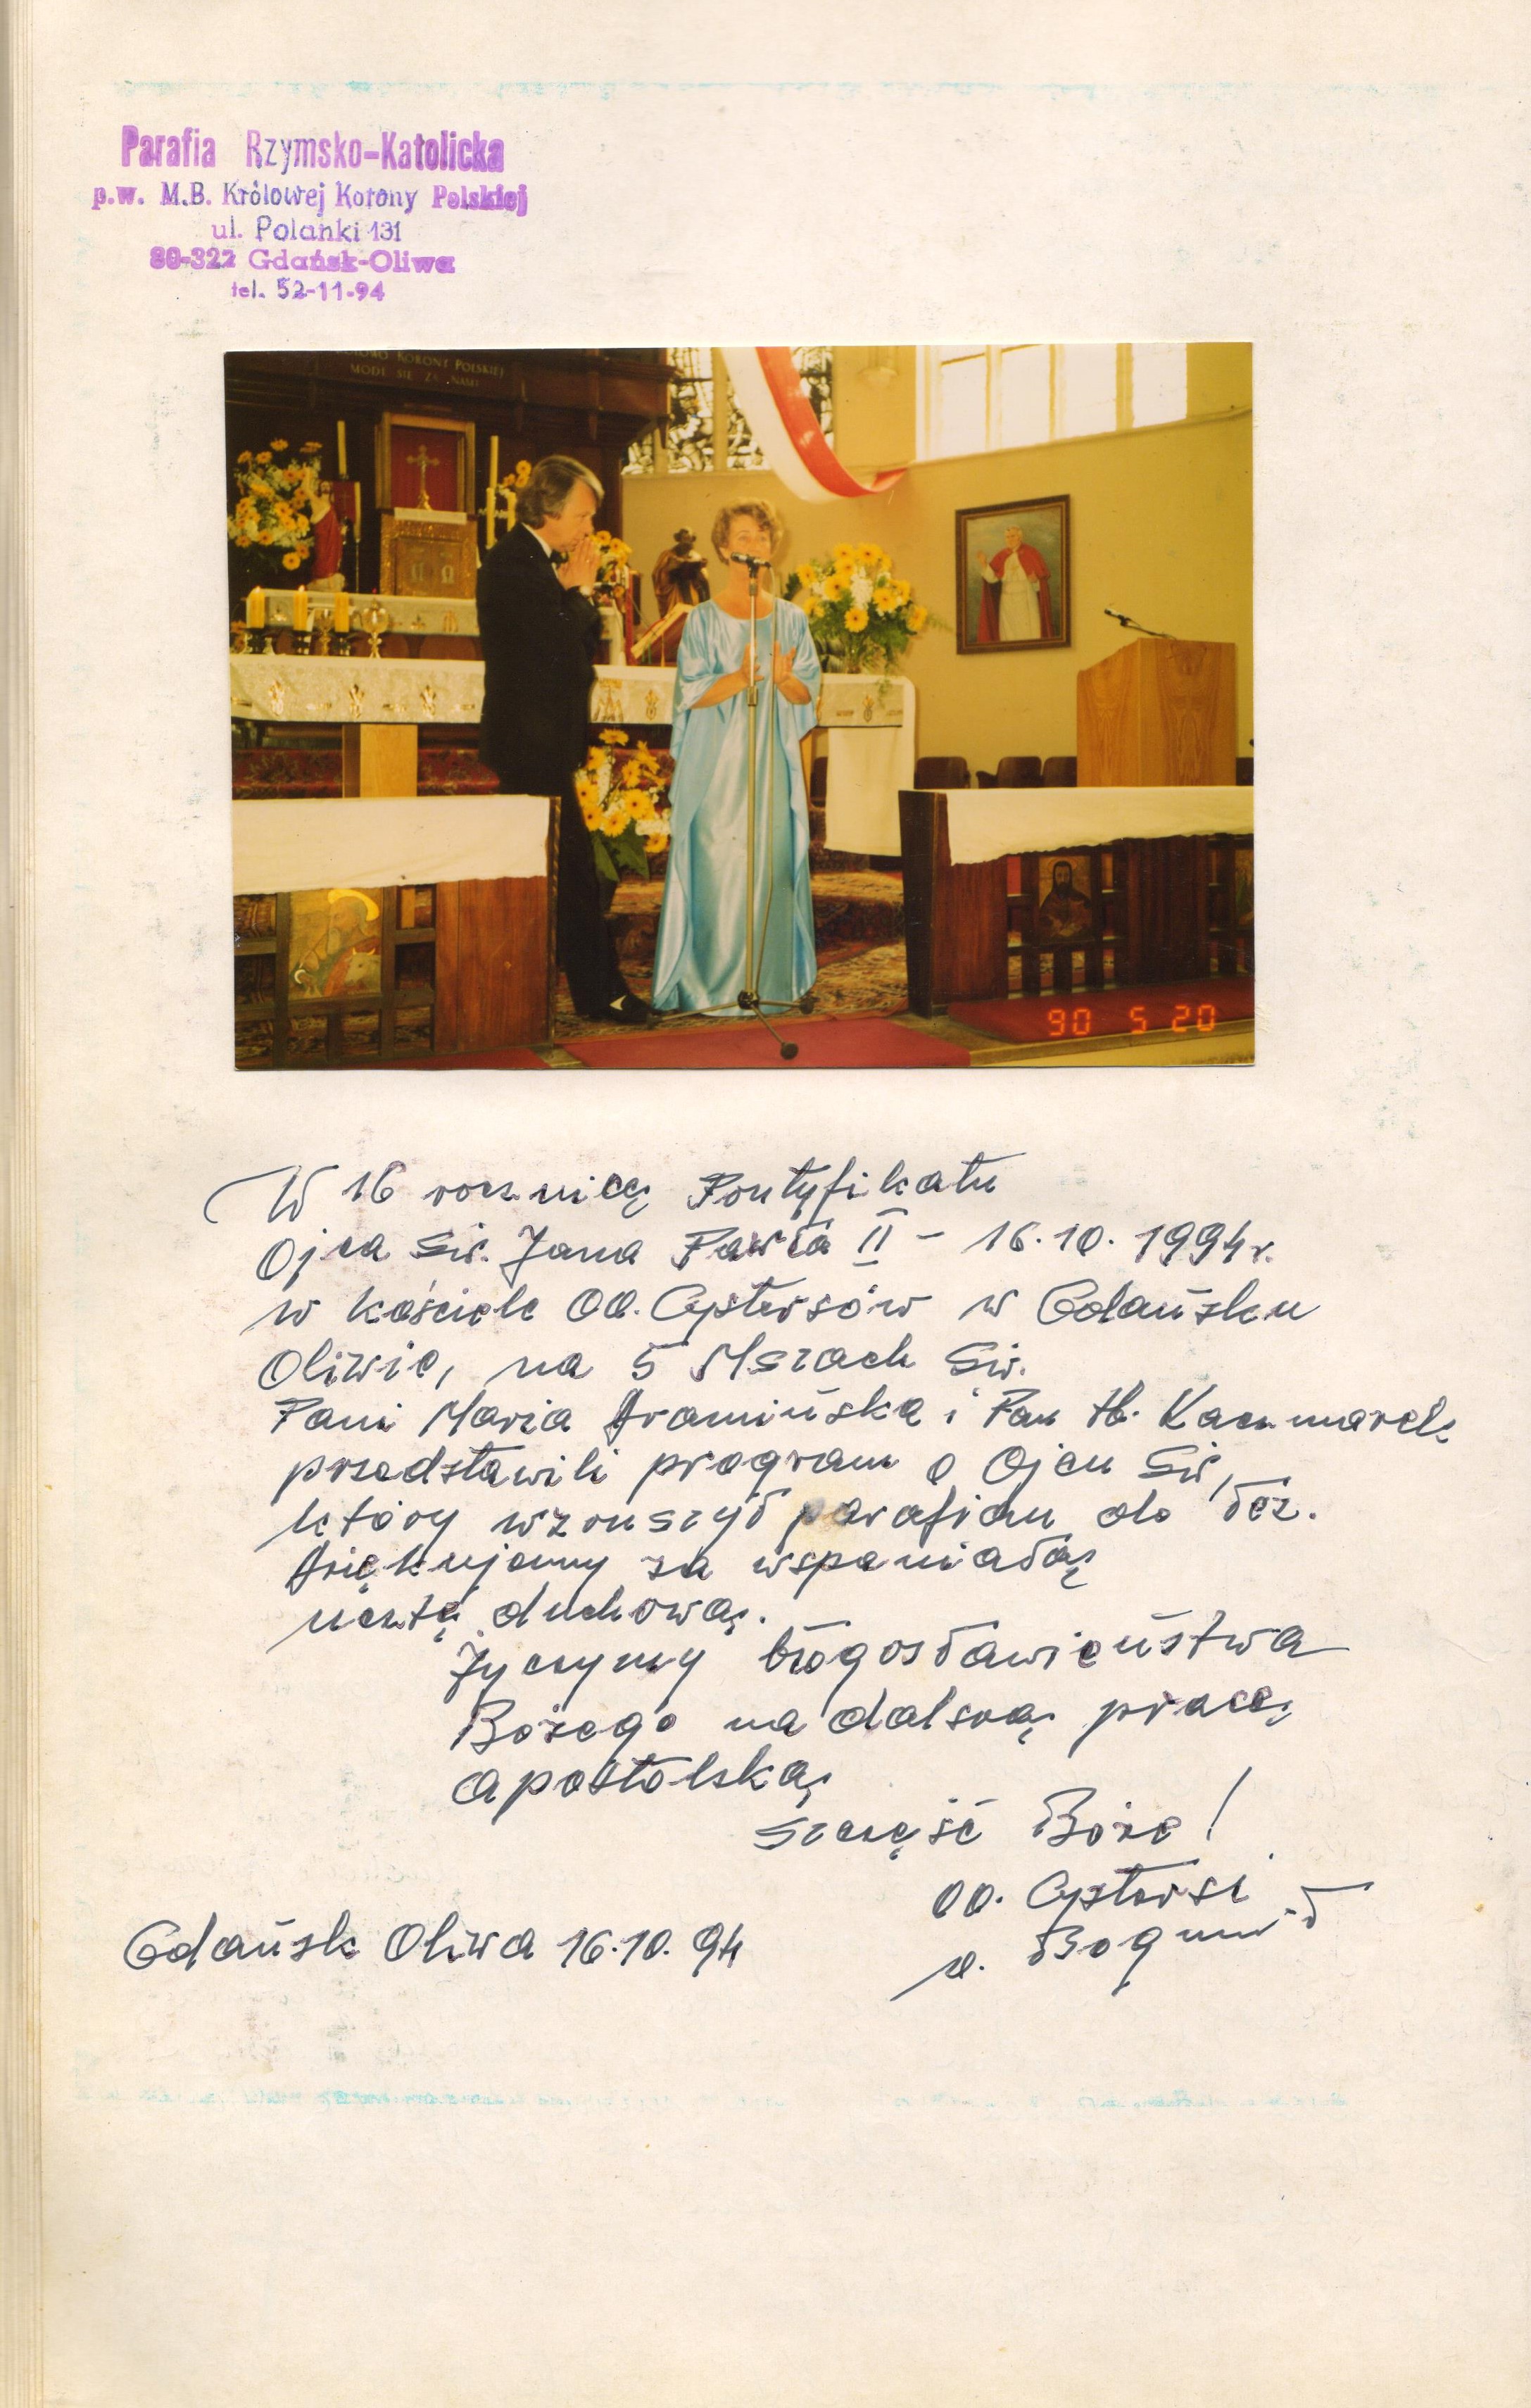 Parafia Rzymsko-Katolicka
p.w. M.B. Królowej Korony Polskiej
ul. Polanki 131
80-322 Gdańsk-Oliwa
tel. 52-11-94
KORONY POLSKIEJ
MÓDL SIĘ ZA NAMI
90 5 20
W 16 rocznicę Pontyfikatu
Ojca Św. Jana Pawła II - 16.10.1994r.
w kościele OO. Cystersów w Gdańsku
Oliwie, na 5 Mszach Św.
Pani Maria Dramińska i Pan H. Kaczmarek
przedstawili program o Ojcu Św,
który wzruszył parafian do łez.
Dziękujemy za wspaniałą
ucztę duchową.
Życzymy błogosławieństwa
Bożego na dalszą pracę
apostolską
Szczęść Boże!
OO. Cystersi
o. Bogumił
Gdańsk Oliwa 16.10.94